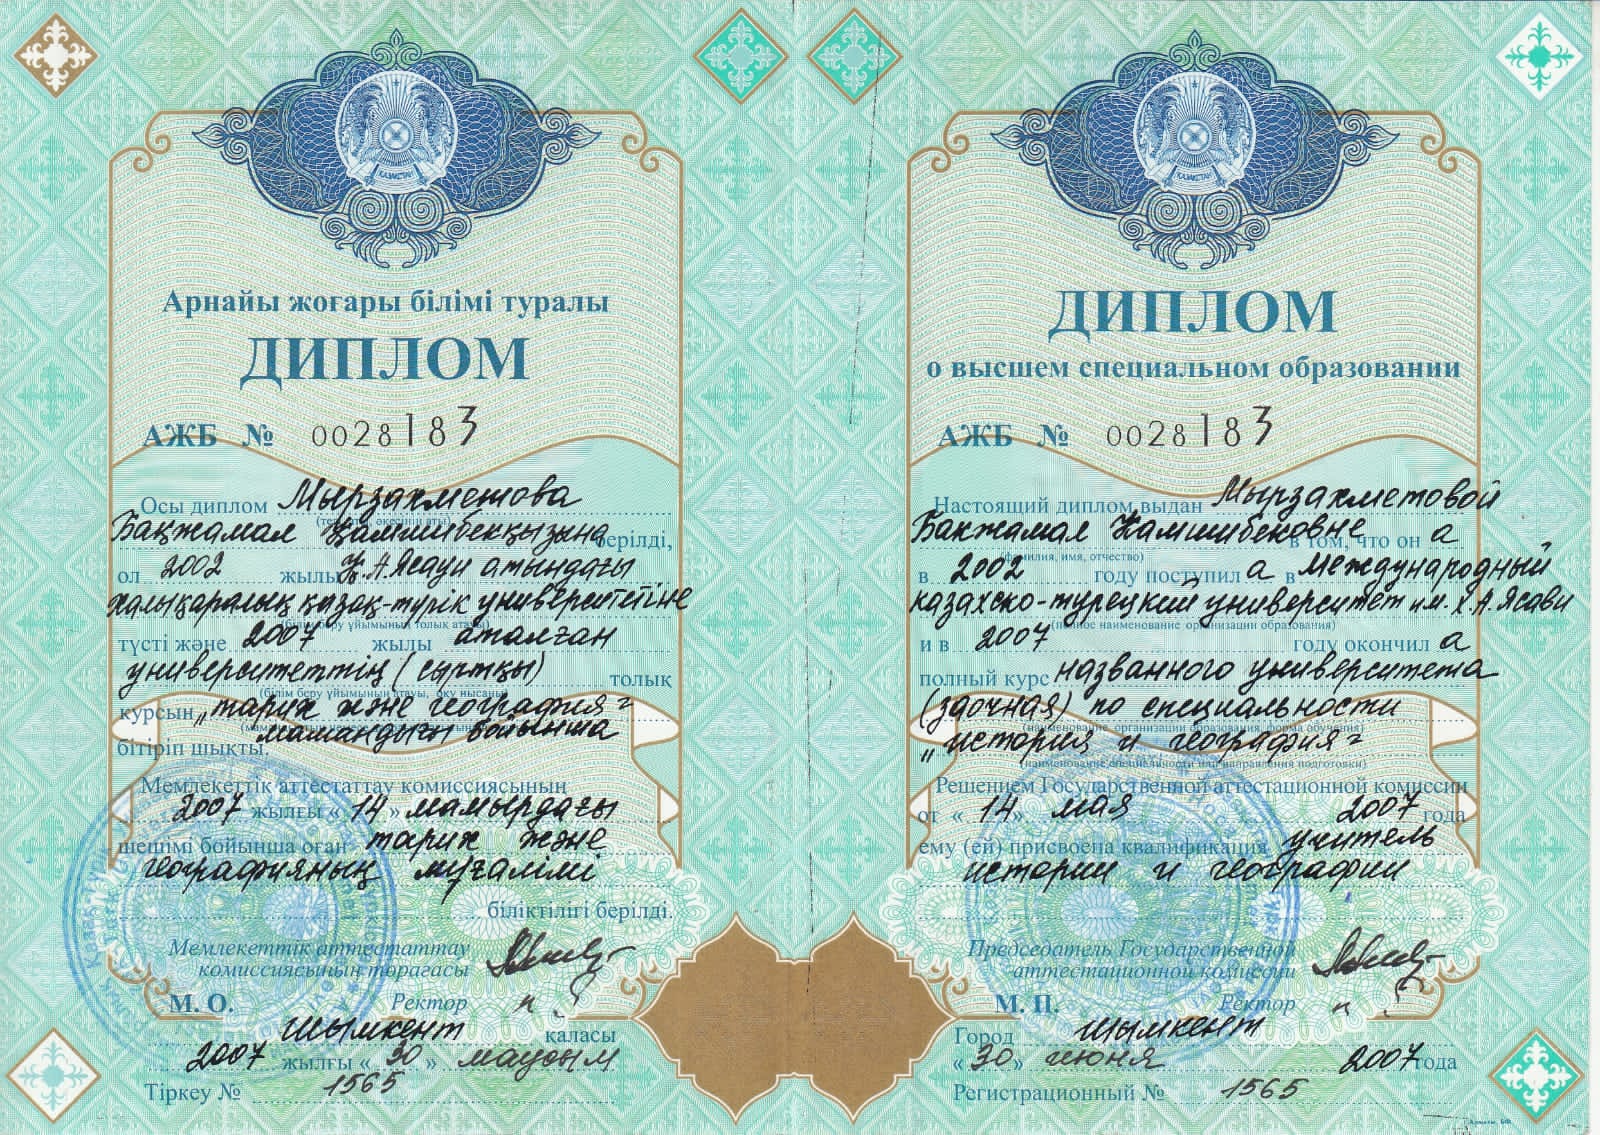 ҚАЗАҚСТАН
Арнайы жоғары білімі туралы
ДИПЛОМ
АЖБ № 0028183
Осы диплом Мырзахметова
(тегі, аты, әкесінің аты)
Бақжамал Қамшибекқызына берілді,
ол 2002 жылы Қ.А.Ясауи атындағы
халықаралық қазақ-түрік университетіне
(білім беру ұйымының толық атауы)
түсті және 2007 жылы аталған
университеттің (сыртқы) толық
(білім беру ұйымының атауы, оқу нысаны)
курсын „тарих және география"
мамандығы бойынша
бітіріп шықты.
Мемлекеттік аттестаттау комиссиясының
2007 жылғы « 14 » мамырдағы
шешімі бойынша оған тарих және
географияның мұғалімі
біліктілігі берілді.
Мемлекеттік аттестаттау
комиссиясының төрағасы
М. О. Ректор
Шымкент қаласы
2007 жылғы « 30 » маусым
Тіркеу № 1565
ҚАЗАҚСТАН
ДИПЛОМ
о высшем специальном образовании
АЖБ № 0028183
Настоящий диплом выдан Мырзахметовой
Бакжамал Камшибековне в том, что он а
(фамилия, имя, отчество)
в 2002 году поступил а в Международный
казахско-турецкий университет им. Х.А.Ясави
(полное наименование организации образования)
и в 2007 году окончил а
полный курс названного университета
(заочная) по специальности
(наименование организации образования, форма обучения)
„история и география"
(наименование специальности или направления подготовки)
Решением Государственной аттестационной комиссии
от « 14 » мая 2007 года
ему (ей) присвоена квалификация учитель
истории и географии
Председатель Государственной
аттестационной комиссии
М. П. Ректор
Город Шымкент
« 30 » июня 2007 года
Регистрационный № 1565